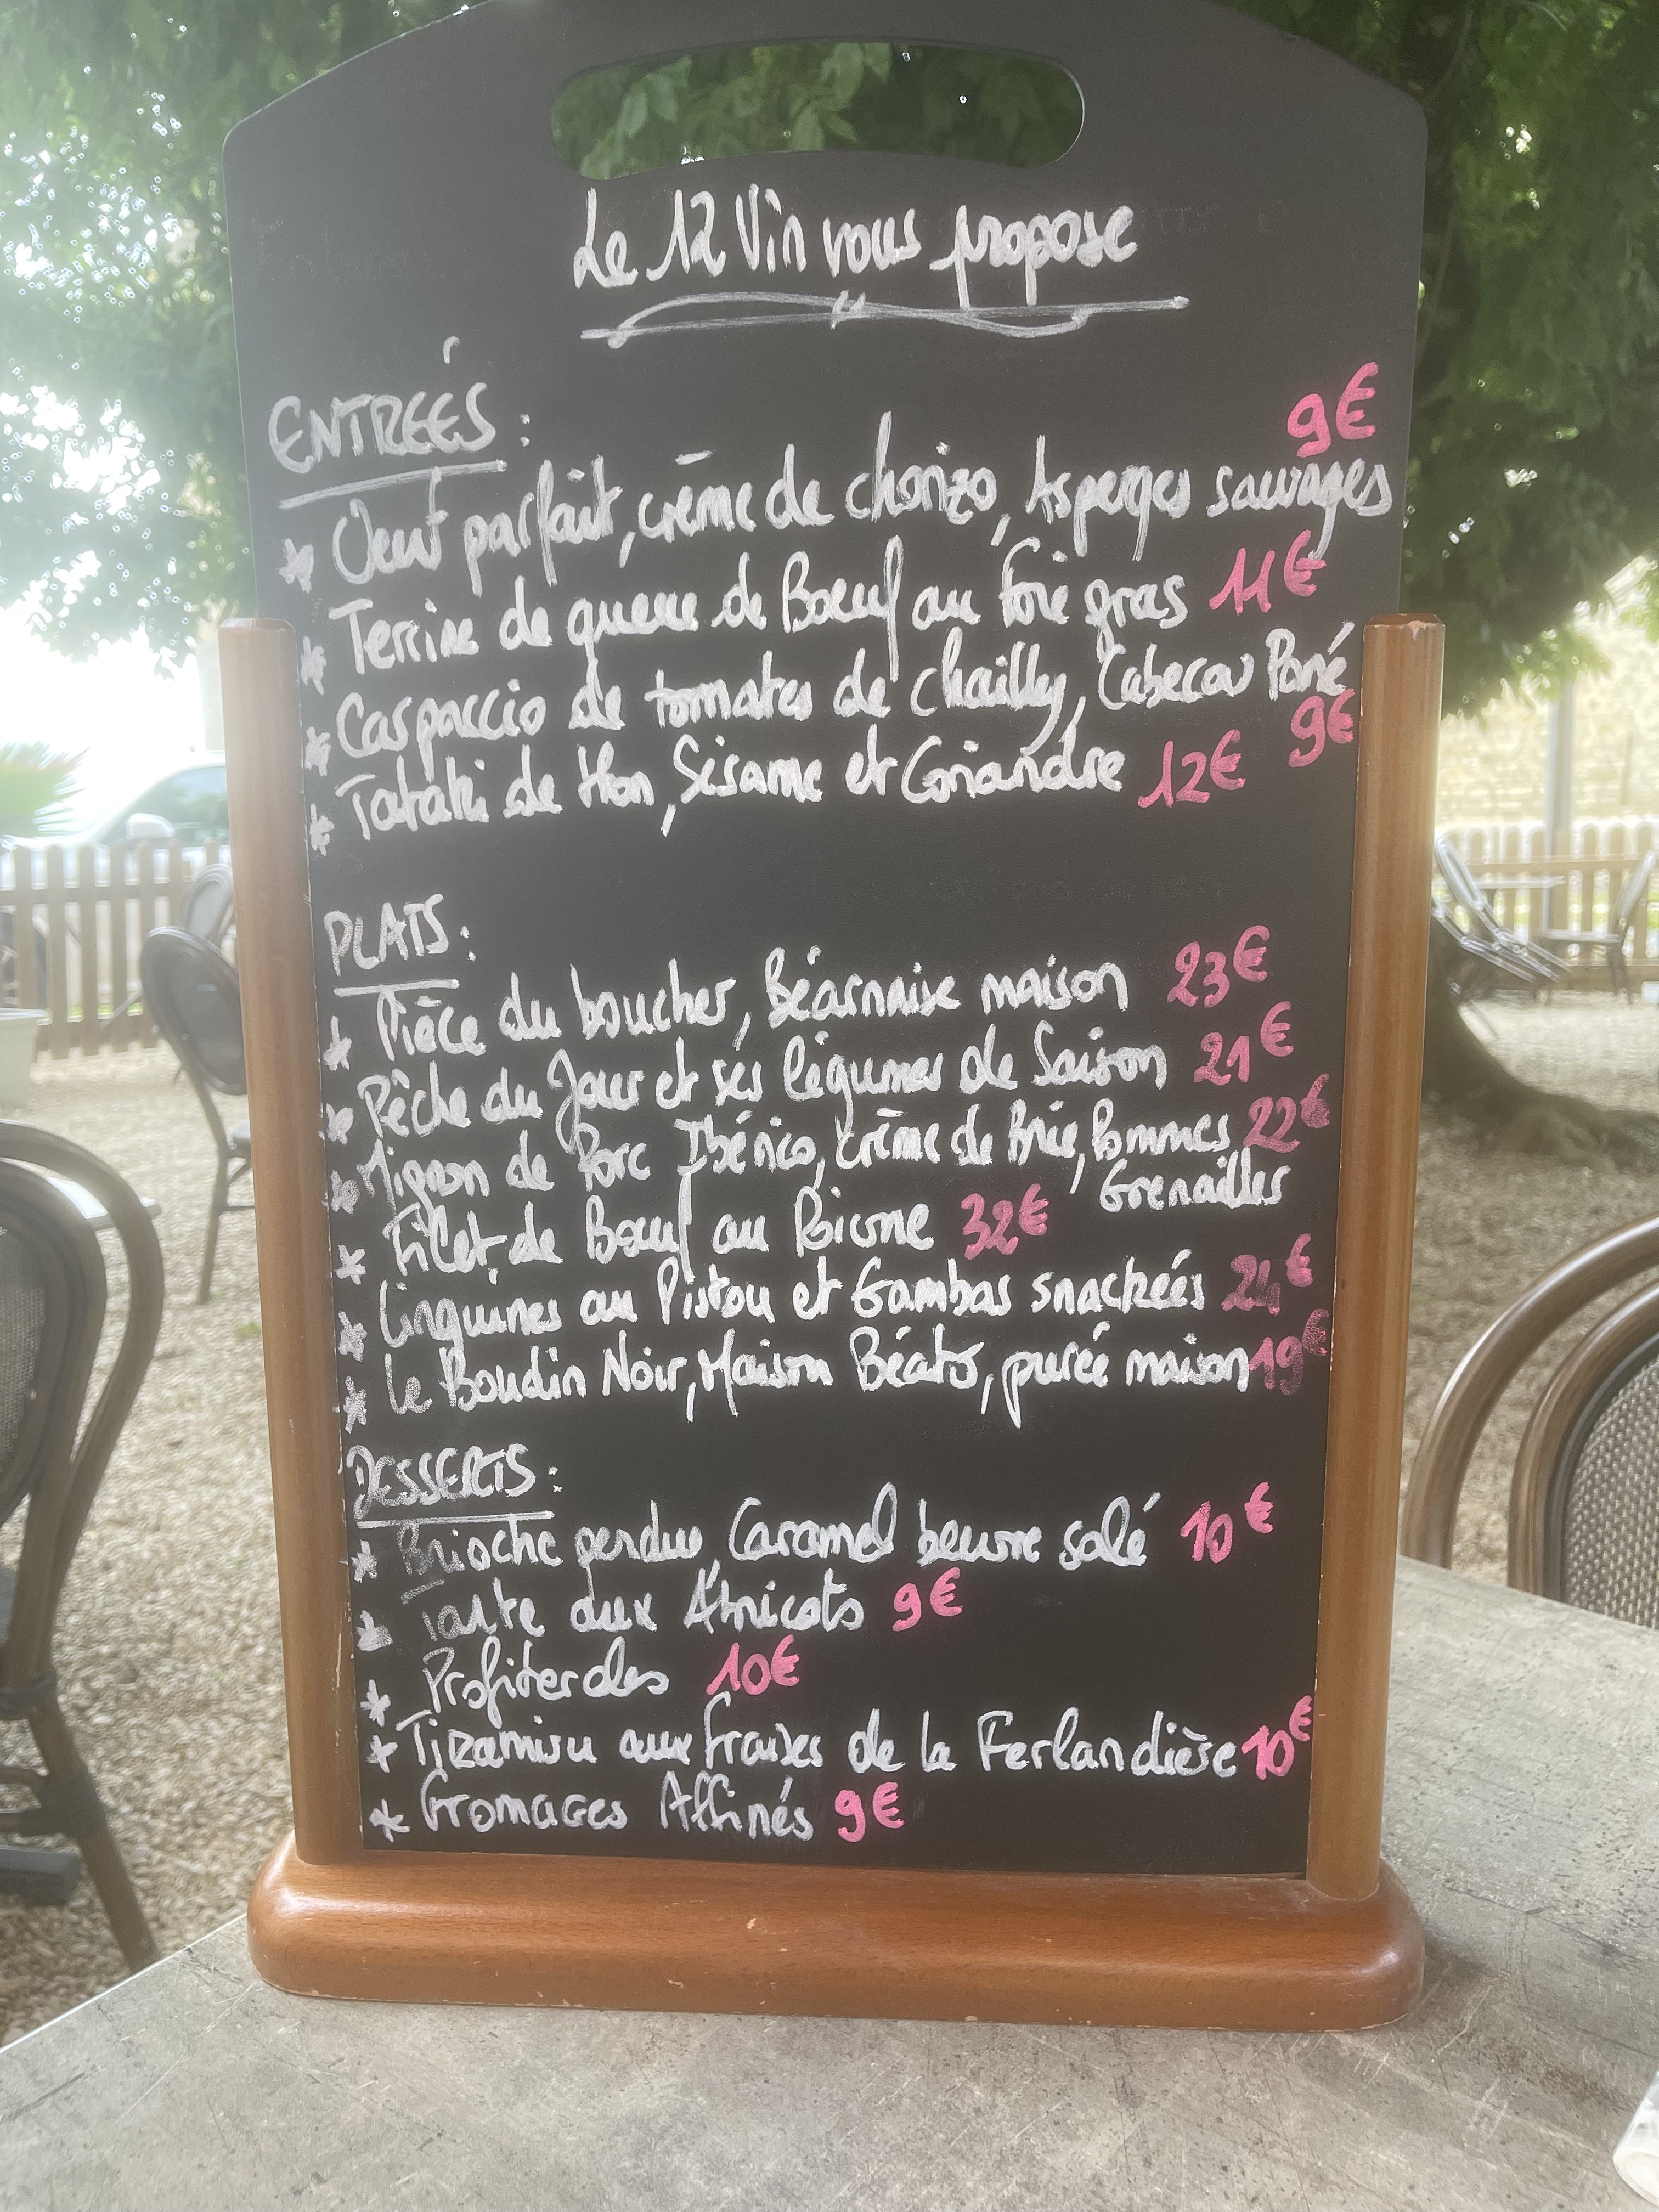 Le 12 Vin vous propose
ENTREÉS :
9€
* Oeuf parfait, crème de chorizo, Asperges sauvages
* Terrine de queue de Boeuf au foie gras 11€
* Carpaccio de tomates de chailly, Cabecou Pané
9€
* Tataki de thon, Sésame et Coriandre 12€
PLATS :
* Pièce du boucher, Béarnaise maison 23€
* Pêche du Jour et ses légumes de Saison 21€
* Mignon de Porc Ibérico, crème de Brie, Pommes 22€
Grenailles
* Filet de Boeuf au Poivre 32€
* Linguines au Pistou et Gambas snackées 24€
* Le Boudin Noir, Maison, purée maison 19€
DESSERTS :
* Brioche perdue, Caramel beurre salé 10€
* Tarte aux Abricots 9€
* Profiteroles 10€
* Tiramisu aux fraises de la Ferlandière 10€
* Fromages Affinés 9€